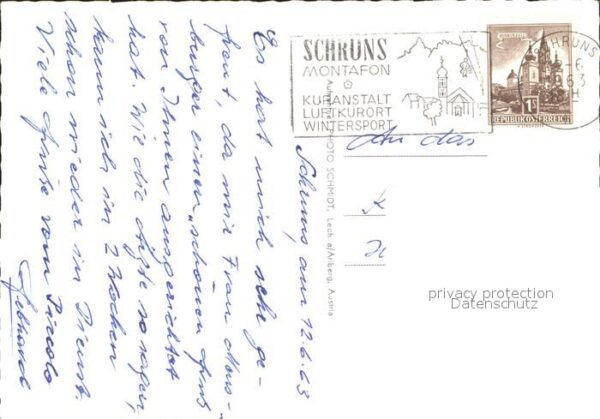 Schruns, am 12.6.63
Es hat mich sehr ge-
freut, da mir Frau
burger einen „schönen Gruß
von Ihnen ausgerichtet
hat. Wie die Ärzte so sagen,
kann ich in 2 Wochen
schon wieder in Dienst.
Viele Grüße vom Piccolo
Gebhard
SCHRUNS
MONTAFON
KURANSTALT
LUFTKURORT
WINTERSPORT
SCHRUNS
6
63
H
1 S
REPUBLIK ÖSTERREICH
An das
PHOTO SCHMIDT, Lech a/Arlberg, Austria
privacy protection
Datenschutz